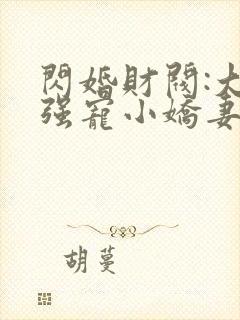 閃婚財閥:大
强寵小嬌妻
胡蔓